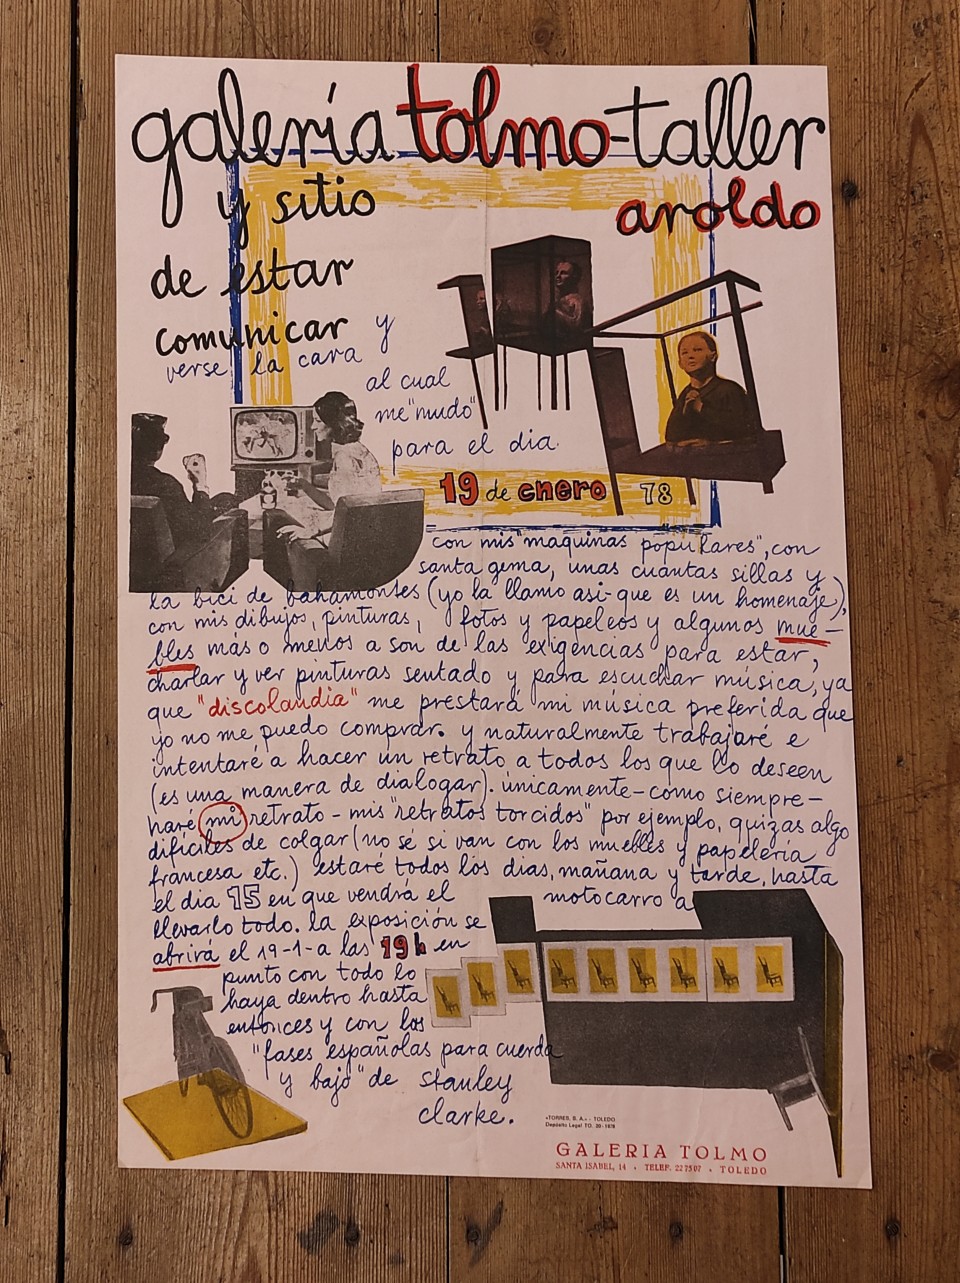 galería tolmo-taller
y sitio aroldo
de estar
comunicar y
verse la cara
al cual
me "mudo"
para el dia
19 de enero 78
con mis "maquinas populares", con
santa gema, unas cuantas sillas y
la bici de bahamontes (yo la llamo asi-que es un homenaje),
con mis dibujos, pinturas, fotos y papeleos y algunos mue-
bles más o menos a son de las exigencias para estar,
charlar y ver pinturas sentado y para escuchar música, ya
que "discolandia" me prestará mi música preferida que
yo no me puedo comprar. y naturalmente trabajaré e
intentaré a hacer un retrato a todos los que lo deseen
(es una manera de dialogar). únicamente-como siempre-
haré mi retrato - mis "retratos torcidos" por ejemplo, quizas algo
difíciles de colgar (no sé si van con los muebles y papelería
francesa etc.) estaré todos los dias, mañana y tarde, hasta
el dia 15 en que vendrá el motocarro a
llevarlo todo. la exposición se
abrirá el 19-1-a las 19h en
punto con todo lo
haya dentro hasta
entonces y con los
"fases españolas para cuerda
y bajo" de stanley
clarke.
«TORRES, S. A.» - TOLEDO
Depósito Legal TO. 20-1978
GALERIA TOLMO
SANTA ISABEL, 14 · TELEF. 227507 · TOLEDO